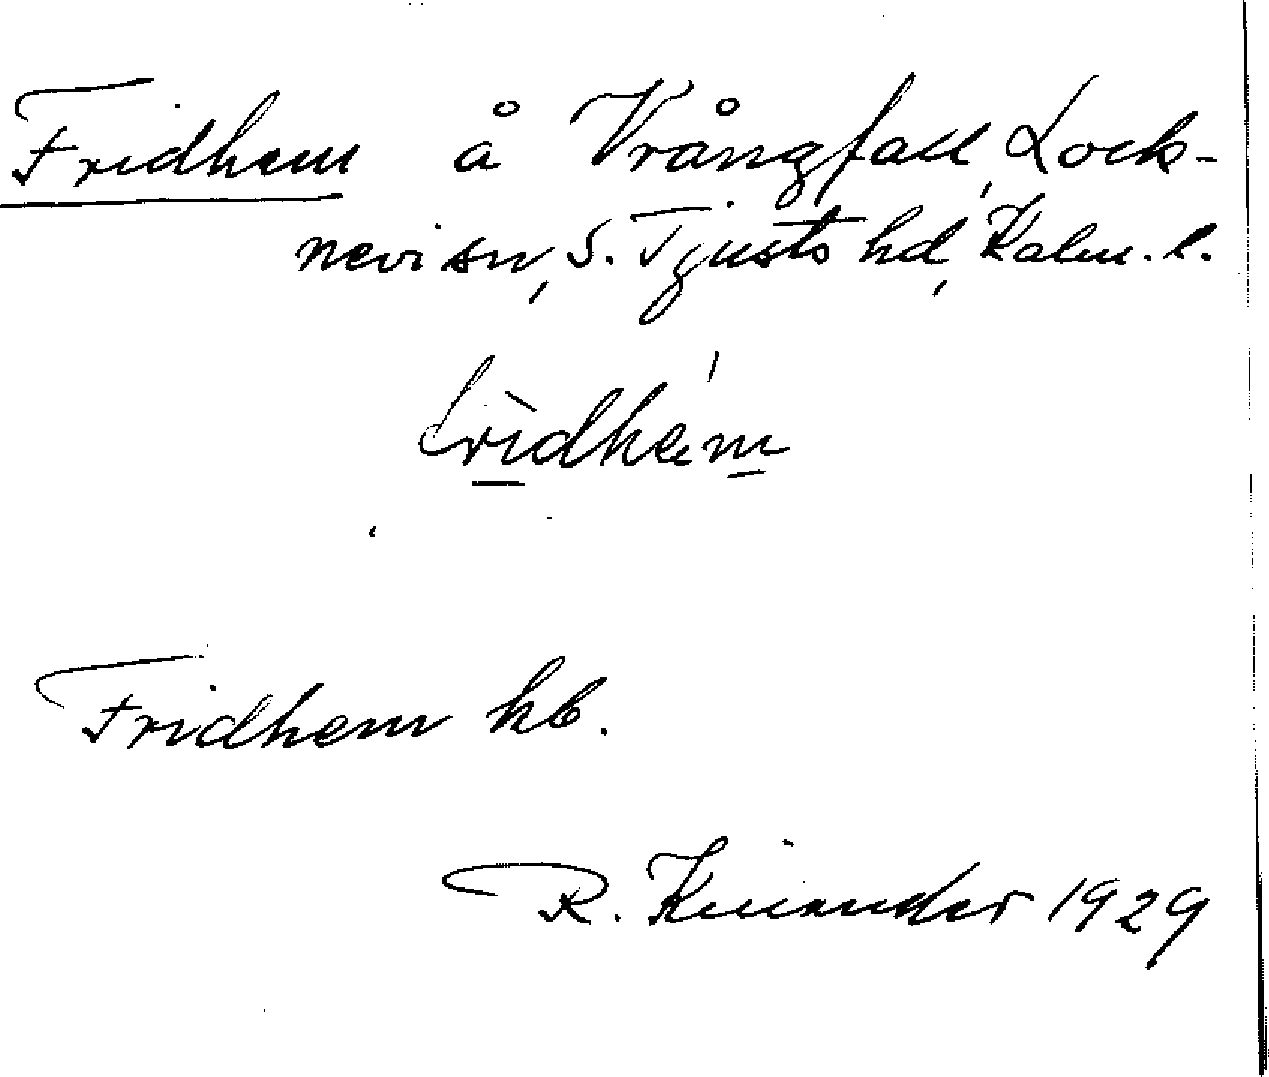 Fridhem å Vrångfall, Lock-
nevi sn, S. Tjusts hd, Kalm. l.
Fridhem kb.
R. Kinander 1929